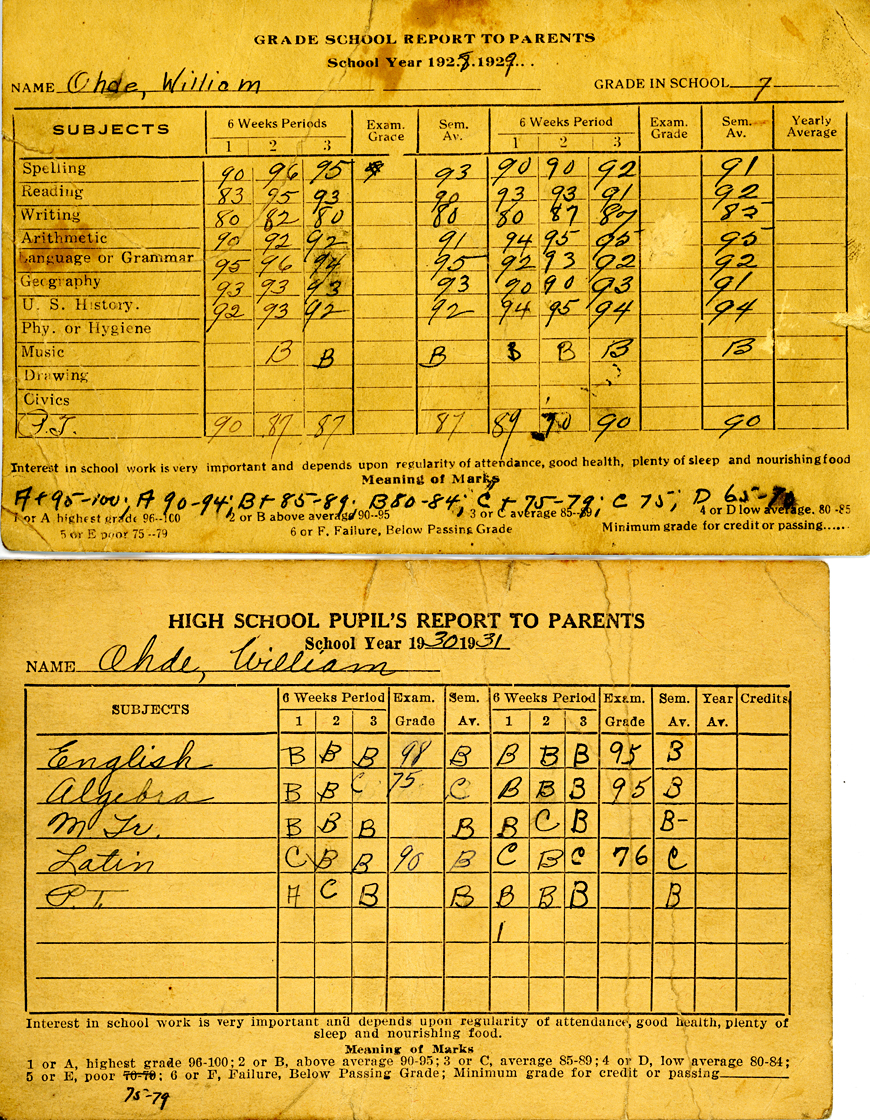 GRADE SCHOOL REPORT TO PARENTS
School Year 1928.1929...
NAME Ohde, William GRADE IN SCHOOL 7
SUBJECTS 6 Weeks Periods Exam. Grace Sem. Av. 6 Weeks Period Exam. Grade Sem. Av. Yearly Average
1 2 3 1 2 3
Spelling 90 96 95 93 90 90 92 91
Reading 83 95 93 90 93 93 91 92
Writing 80 82 80 80 80 87 87 85
Arithmetic 90 92 92 91 94 95 95 95
Language or Grammar 95 96 94 95 92 93 92 92
Geography 93 93 93 93 90 90 93 91
U. S. History. 92 93 92 92 94 95 94 94
Phy. or Hygiene
Music B B B B B B B
Drawing
Civics
P.T. 90 87 87 87 89 90 90 90
Interest in school work is very important and depends upon regularity of attendance, good health, plenty of sleep and nourishing food
Meaning of Marks
A+ 95-100; A 90-94; B+ 85-89; B 80-84; C+ 75-79; C 75; D 65-70
1 or A highest grade 96--100 2 or B above average 90--95 3 or C average 85--89 4 or D low average. 80 -85
5 or E poor 75 --79 6 or F, Failure, Below Passing Grade Minimum grade for credit or passing......
HIGH SCHOOL PUPIL'S REPORT TO PARENTS
School Year 1930 1931
NAME Ohde, William
SUBJECTS 6 Weeks Period Exam. Grade Sem. Av. 6 Weeks Period Exam. Grade Sem. Av. Year Av. Credits
1 2 3 1 2 3
English B B B 98 B B B B 95 B
Algebra B B C 75 C B B B 95 B
M Tr. B B B B B C B B-
Latin C B B 90 B C B C 76 C
P.T. A C B B B B B B
1
Interest in school work is very important and depends upon regularity of attendance, good health, plenty of
sleep and nourishing food.
Meaning of Marks
1 or A, highest grade 96-100; 2 or B, above average 90-95; 3 or C, average 85-89; 4 or D, low average 80-84;
5 or E, poor 70-79; 6 or F, Failure, Below Passing Grade; Minimum grade for credit or passing
75-79